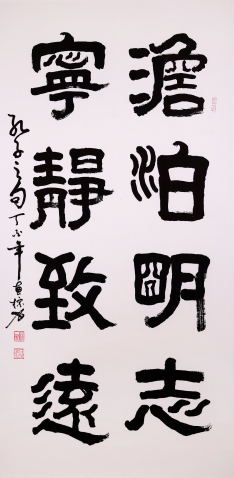 澹泊明志
寧靜致遠
孔子之句丁亥年